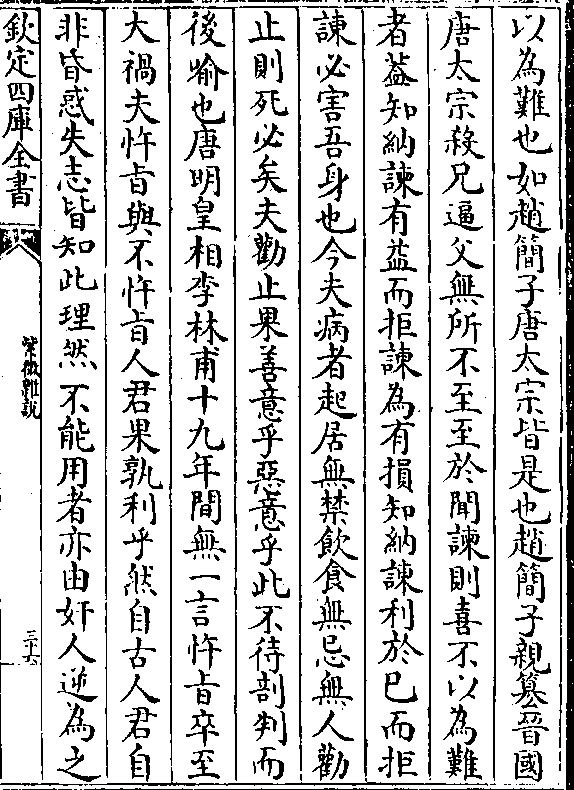 以為難也如趙簡子唐太宗皆是也趙簡子親簒晉國
唐太宗殺兄逼父無所不至至於聞諫則喜不以為難
者葢知納諫有益而拒諫為有損知納諫利於已而拒
諫必害吾身也今夫病者起居無禁飲食無忌無人勸
止則死必矣夫勸止果善意乎惡意乎此不待剖判而
後喻也唐明皇相李林甫十九年間無一言忤㫖卒至
大禍夫忤㫖與不忤㫖人君果孰利乎然自古人君自
非昏惑失志皆知此理然不能用者亦由奸人逆為之
欽定四庫全書
紫微雜說
三十六